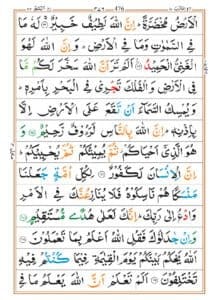 476
الْاَرْضُ مُخْضَرَّةً ؕ اِنَّ اللّٰهَ لَطِيْفٌ خَبِيْرٌ ۚ لَهٗ مَا
فِى السَّمٰوٰتِ وَمَا فِى الْاَرْضِ ؕ وَاِنَّ اللّٰهَ لَهُوَ
الْغَنِىُّ الْحَمِيْدُ اَلَمْ تَرَ اَنَّ اللّٰهَ سَخَّرَ لَكُمْ مَّا
فِى الْاَرْضِ وَالْفُلْكَ تَجْرِىْ فِى الْبَحْرِ بِاَمْرِهٖ ؕ
وَيُمْسِكُ السَّمَآءَ اَنْ تَقَعَ عَلَى الْاَرْضِ اِلَّا
بِاِذْنِهٖ ؕ اِنَّ اللّٰهَ بِالنَّاسِ لَرَءُوْفٌ رَّحِيْمٌ وَ
هُوَ الَّذِىْۤ اَحْيَاكُمْ ثُمَّ يُمِيْتُكُمْ ثُمَّ يُحْيِيْكُمْ ؕ
اِنَّ الْاِنْسَانَ لَكَفُوْرٌ لِكُلِّ اُمَّةٍ جَعَلْنَا
مَنْسَكًا هُمْ نَاسِكُوْهُ فَلَا يُنَازِعُنَّكَ فِى الْاَمْرِ
وَادْعُ اِلٰى رَبِّكَ ؕ اِنَّكَ لَعَلٰى هُدًى مُّسْتَقِيْمٍ
وَاِنْ جَادَلُوْكَ فَقُلِ اللّٰهُ اَعْلَمُ بِمَا تَعْمَلُوْنَ
اَللّٰهُ يَحْكُمُ بَيْنَكُمْ يَوْمَ الْقِيٰمَةِ فِيْمَا كُنْتُمْ فِيْهِ
تَخْتَلِفُوْنَ اَلَمْ تَعْلَمْ اَنَّ اللّٰهَ يَعْلَمُ مَا فِى